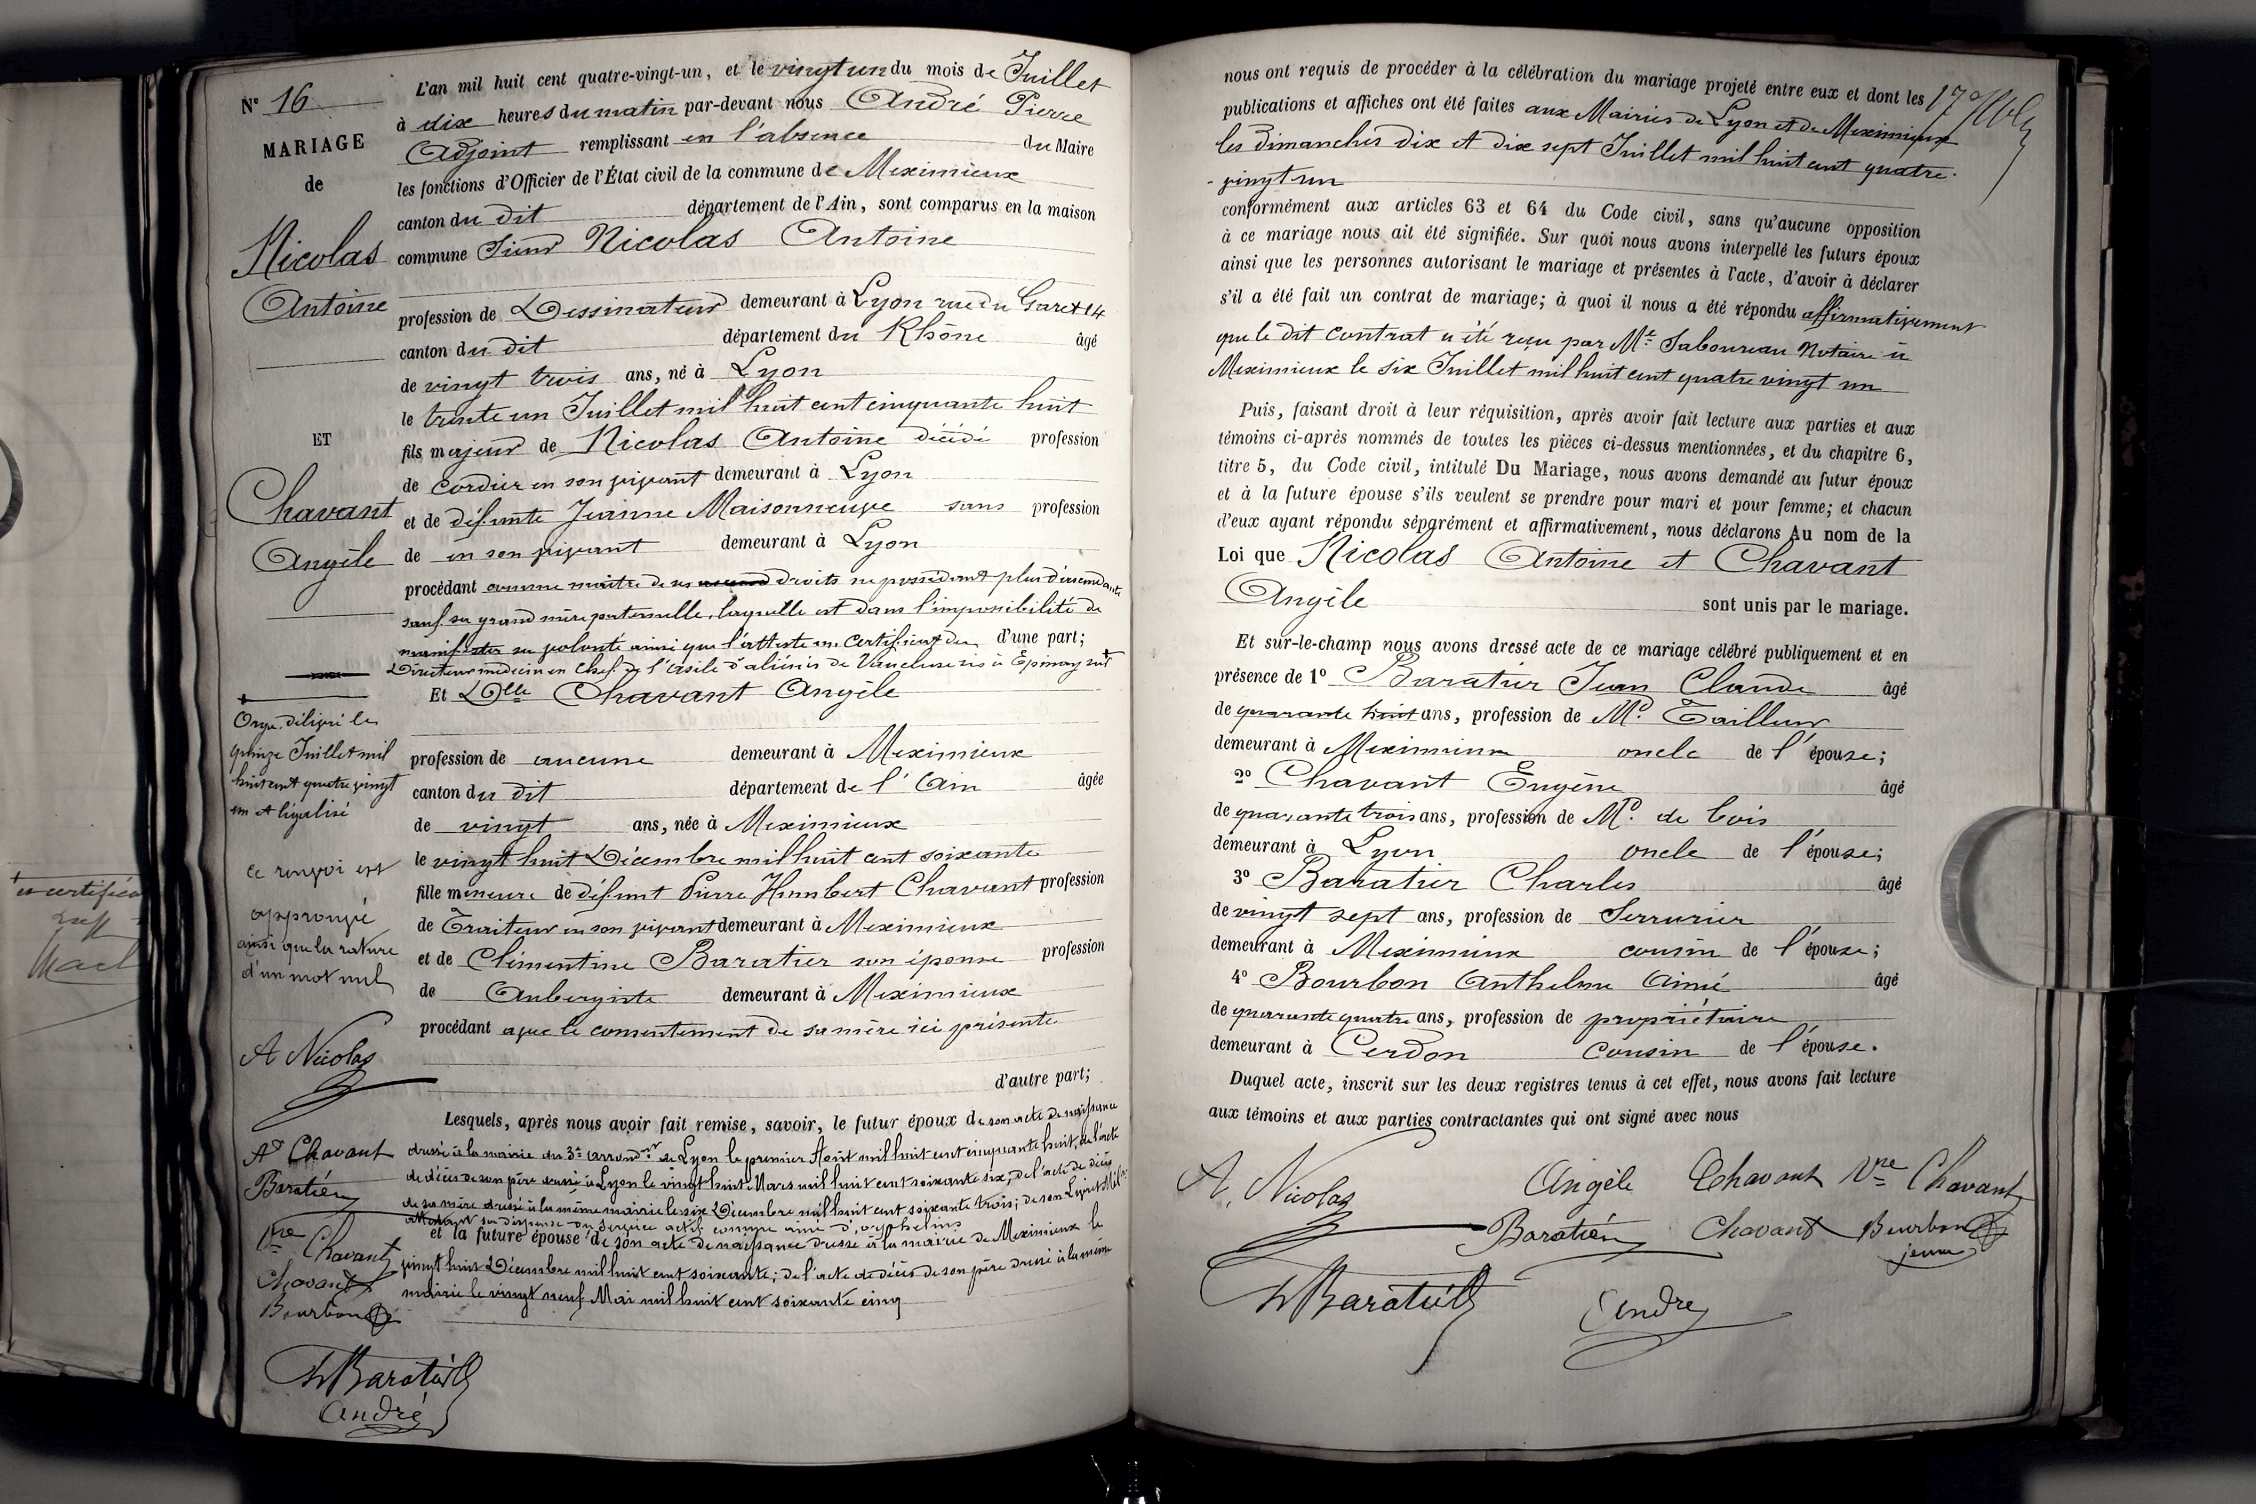 N° 16
MARIAGE
de
Nicolas
Antoine
ET
Chavant
Angèle
L'an mil huit cent quatre-vingt-un, et le vingt un du mois de Juillet
à dix heures du matin par-devant nous André Pierre
Adjoint remplissant en l'absence du Maire
les fonctions d'Officier de l'État civil de la commune de Meximieux
canton du dit département de l'Ain, sont comparus en la maison
commune Sieur Nicolas Antoine
profession de Dessinateur demeurant à Lyon rue du Garet 14
canton du dit département du Rhône âgé
de vingt trois ans, né à Lyon
le trente un Juillet mil huit cent cinquante huit
fils majeur de Nicolas Antoine décédé profession
de Cordier en son vivant demeurant à Lyon
et de défunte Jeanne Maisonneuve sans profession
de en son vivant demeurant à Lyon
procédant comme maître de ses droits ne possédant plus d'ascendants
sauf sa grand mère paternelle, laquelle est dans l'impossibilité de
manifester sa volonté ainsi que l'atteste un certificat du d'une part;
Directeur médecin en chef de l'asile d'aliénés de Vaucluse sis à Épinay sur
Et Dlle Chavant Angèle
profession de aucune demeurant à Meximieux
canton du dit département de l'Ain âgée
de vingt ans, née à Meximieux
le vingt huit Décembre mil huit cent soixante
fille mineure de défunt Pierre Humbert Chavant profession
de Traiteur en son vivant demeurant à Meximieux
et de Clémentine Baratier son épouse profession
de Aubergiste demeurant à Meximieux
procédant avec le consentement de sa mère ici présente
d'autre part;
Lesquels, après nous avoir fait remise, savoir, le futur époux de son acte de naissance
dressé à la mairie du 3e arrondt de Lyon le premier Août mil huit cent cinquante huit, de l'acte
de décès de son père dressé à Lyon le vingt huit Mars mil huit cent soixante six, de l'acte de décès
de sa mère dressé à la même mairie le six Décembre mil huit cent soixante trois; de son Livret Milre
attestant sa dispense du service actif comme aîné d'orphelins
et la future épouse de son acte de naissance dressé à la mairie de Meximieux le
vingt huit Décembre mil huit cent soixante; de l'acte de décès de son père dressé à la même
mairie le vingt neuf Mai mil huit cent soixante cinq
Orge, délivré le
quinze Juillet mil
huit cent quatre vingt
un et légalisé
Ce renvoi est
approuvé
ainsi que la rature
d'un mot nul
A Nicolas
Ale Chavant
Baratier
Vve Chavant
Chavant
Bourbon
Baratier
André
nous ont requis de procéder à la célébration du mariage projeté entre eux et dont les
publications et affiches ont été faites aux Mairies de Lyon et de Meximieux
les Dimanches dix et dix sept Juillet mil huit cent quatre
vingt un
conformément aux articles 63 et 64 du Code civil, sans qu'aucune opposition
à ce mariage nous ait été signifiée. Sur quoi nous avons interpellé les futurs époux
ainsi que les personnes autorisant le mariage et présentes à l'acte, d'avoir à déclarer
s'il a été fait un contrat de mariage; à quoi il nous a été répondu affirmativement
que le dit contrat a été reçu par Me Saboureau Notaire à
Meximieux le six Juillet mil huit cent quatre vingt un
Puis, faisant droit à leur réquisition, après avoir fait lecture aux parties et aux
témoins ci-après nommés de toutes les pièces ci-dessus mentionnées, et du chapitre 6,
titre 5, du Code civil, intitulé Du Mariage, nous avons demandé au futur époux
et à la future épouse s'ils veulent se prendre pour mari et pour femme; et chacun
d'eux ayant répondu séparément et affirmativement, nous déclarons Au nom de la
Loi que Nicolas Antoine et Chavant
Angèle sont unis par le mariage.
Et sur-le-champ nous avons dressé acte de ce mariage célébré publiquement et en
présence de 1° Baratier Jean Claude âgé
de quarante huit ans, profession de Md Tailleur
demeurant à Meximieux oncle de l'épouse;
2° Chavant Eugène âgé
de quarante trois ans, profession de Md de bois
demeurant à Lyon oncle de l'épouse;
3° Baratier Charles âgé
de vingt sept ans, profession de Serrurier
demeurant à Meximieux cousin de l'épouse;
4° Bourbon Anthelme Aimé âgé
de quarante quatre ans, profession de propriétaire
demeurant à Cerdon Cousin de l'épouse.
Duquel acte, inscrit sur les deux registres tenus à cet effet, nous avons fait lecture
aux témoins et aux parties contractantes qui ont signé avec nous
A. Nicolas Angèle Chavant Vve Chavant
Baratier Chavant Bourbon
jeune
Baratier André